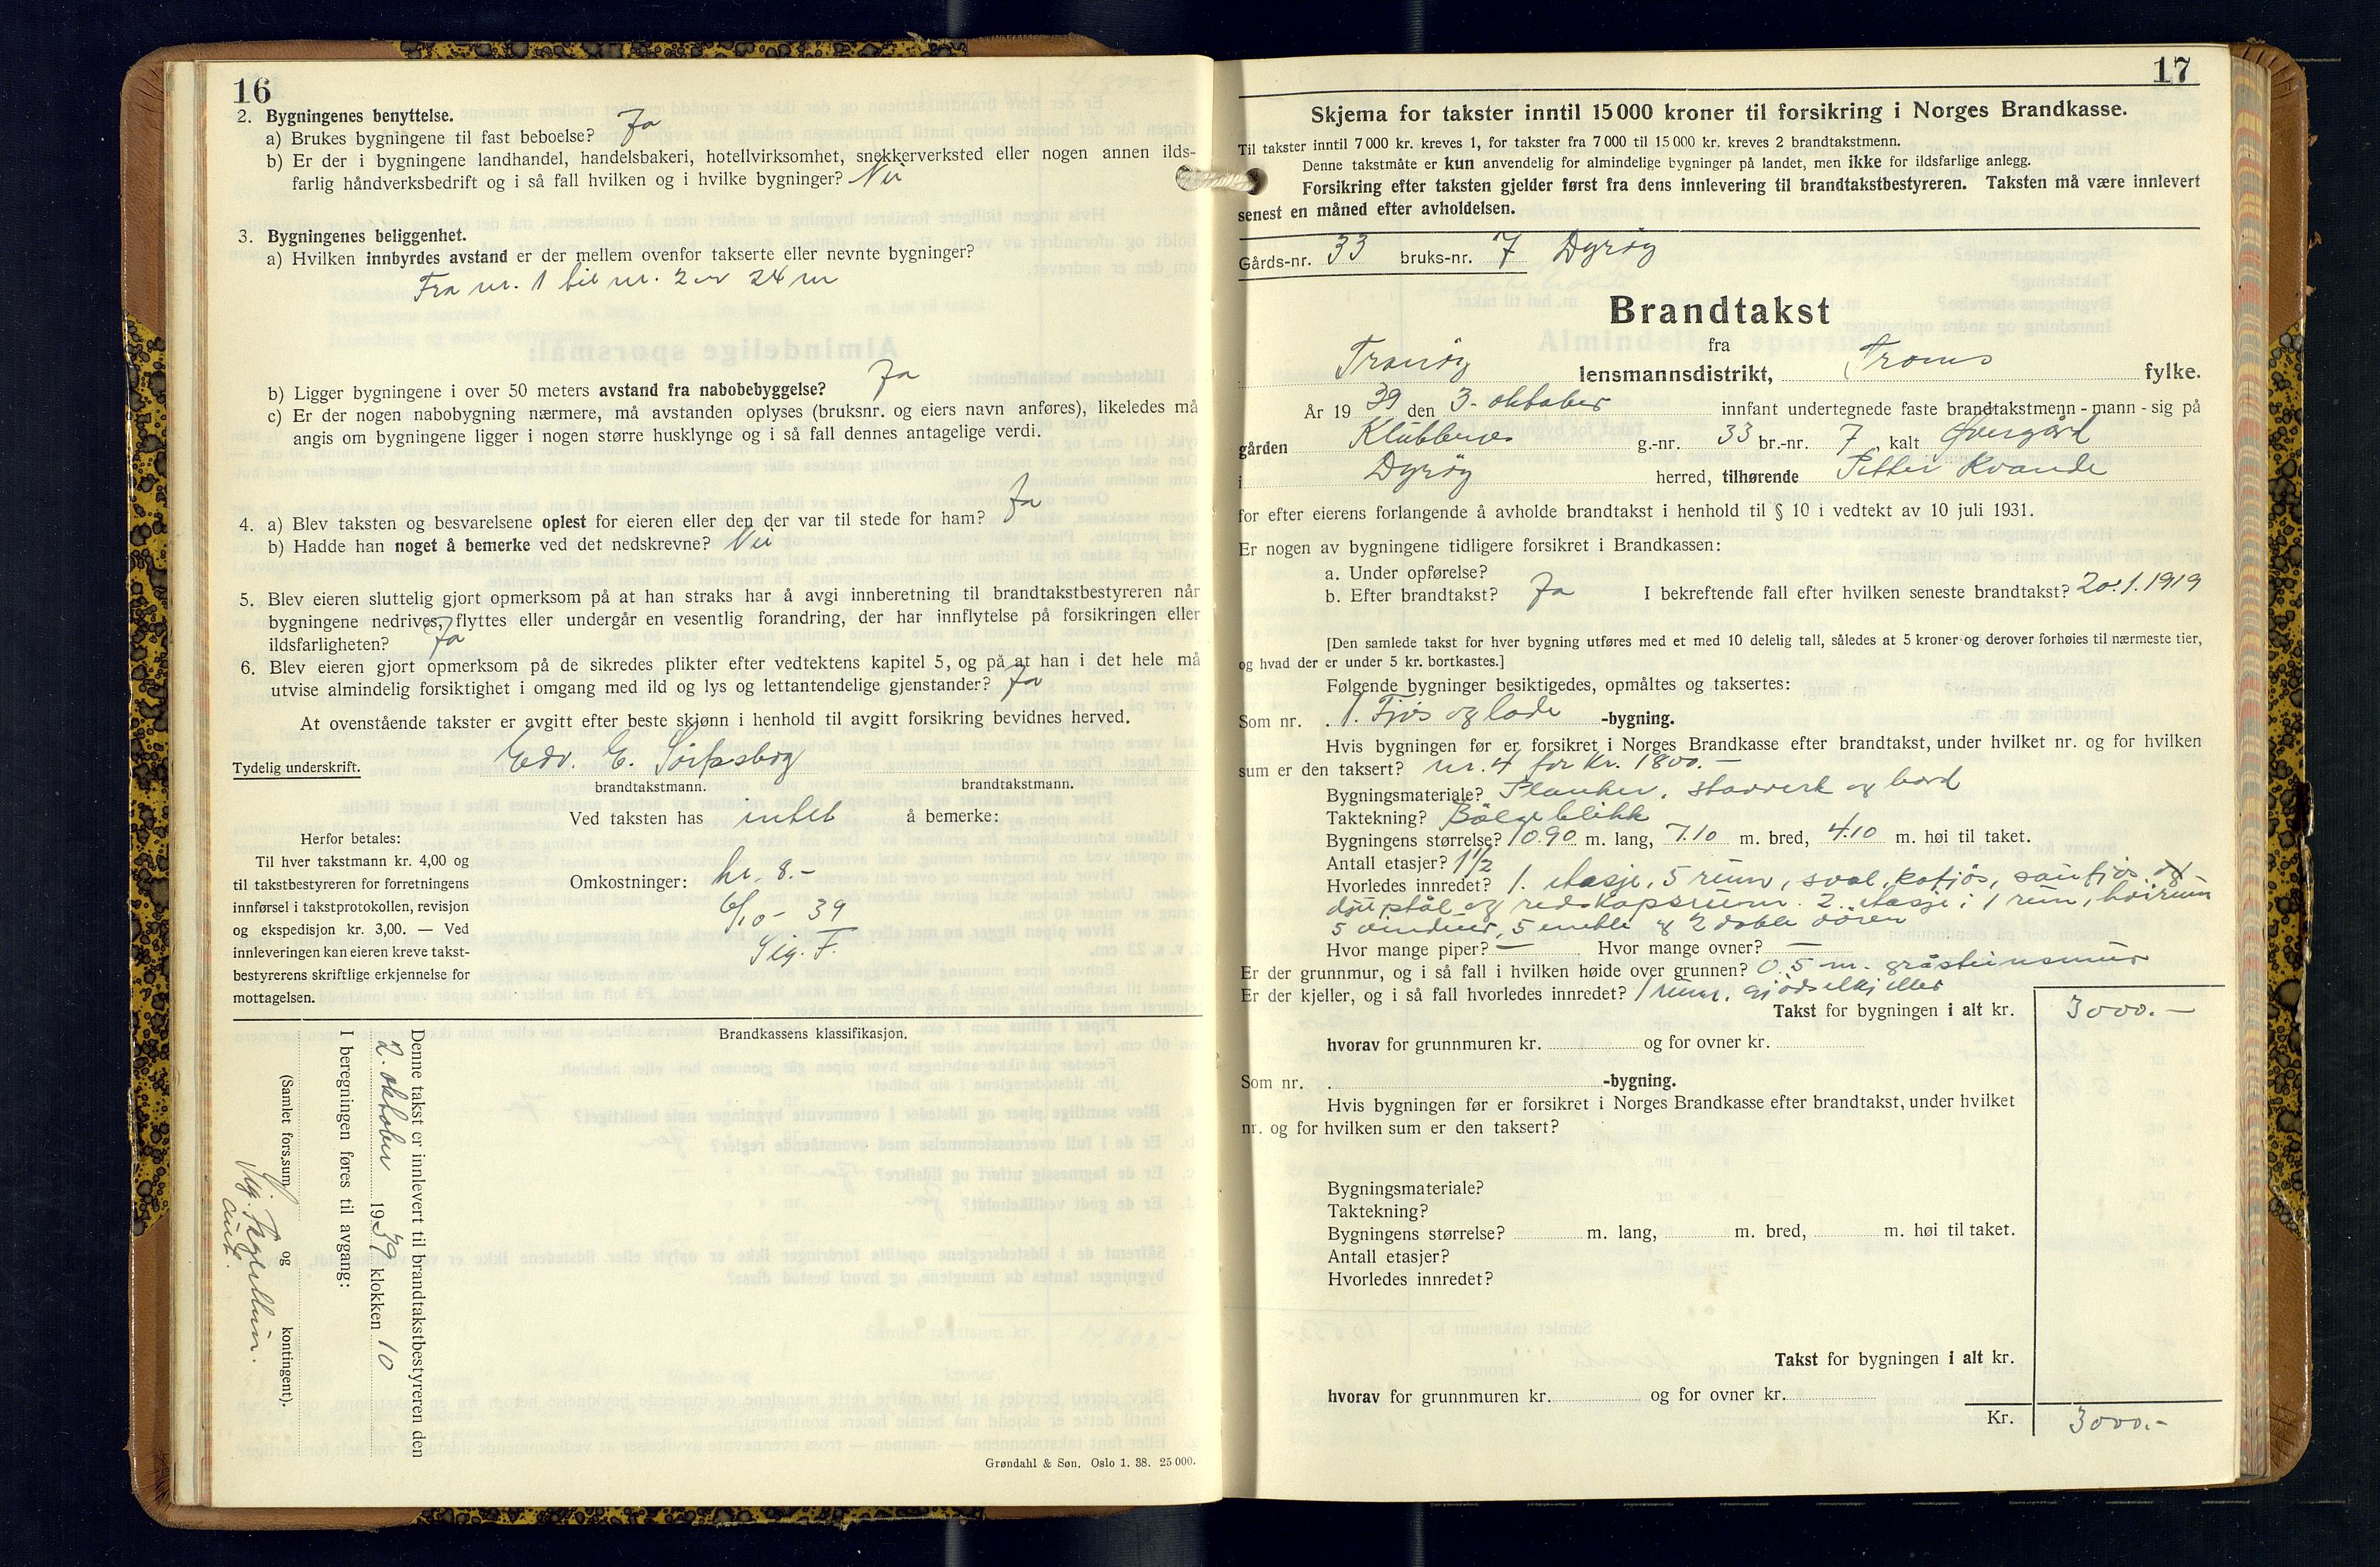 16
2. Bygningenes benyttelse.
a) Brukes bygningene til fast beboelse? Ja
b) Er der i bygningene landhandel, handelsbakeri, hotellvirksomhet, snekkerverksted eller nogen annen ilds-
farlig håndverksbedrift og i så fall hvilken og i hvilke bygninger? Nei
3. Bygningenes beliggenhet.
a) Hvilken innbyrdes avstand er der mellem ovenfor takserte eller nevnte bygninger?
Fra nr. 1 til nr. 2 er 24 m
b) Ligger bygningene i over 50 meters avstand fra nabobebyggelse? Ja
c) Er der nogen nabobygning nærmere, må avstanden oplyses (bruksnr. og eiers navn anføres), likeledes må
angis om bygningene ligger i nogen større husklynge og i så fall dennes antagelige verdi.
4. a) Blev taksten og besvarelsene oplest for eieren eller den der var til stede for ham? Ja
b) Hadde han noget å bemerke ved det nedskrevne? Nei
5. Blev eieren sluttelig gjort opmerksom på at han straks har å avgi innberetning til brandtakstbestyreren når
bygningene nedrives, flyttes eller undergår en vesentlig forandring, der har innflytelse på forsikringen eller
ildsfarligheten? Ja
6. Blev eieren gjort opmerksom på de sikredes plikter efter vedtektens kapitel 5, og på at han i det hele må
utvise almindelig forsiktighet i omgang med ild og lys og lettantendelige gjenstander? Ja
At ovenstående takster er avgitt efter beste skjønn i henhold til avgitt forsikring bevidnes herved.
Tydelig underskrift. Edv. E.
brandtakstmann. brandtakstmann.
Ved taksten has intet å bemerke:
Herfor betales:
Til hver takstmann kr. 4,00 og
til takstbestyreren for forretningens
innførsel i takstprotokollen, revisjon
og ekspedisjon kr. 3,00. — Ved
innleveringen kan eieren kreve takst-
bestyrerens skriftlige erkjennelse for
mottagelsen.
Omkostninger: kr. 8.-
6/10 - 39
Sig. F.
Brandkassens klassifikasjon.
Denne takst er innlevert til brandtakstbestyreren den
2. oktober 1939 klokken 10
I beregningen føres til avgang:
(Samlet fors.sum og kontingent).
Sig.
Grøndahl & Søn. Oslo 1. 38. 25 000.
17
Skjema for takster inntil 15 000 kroner til forsikring i Norges Brandkasse.
Til takster inntil 7 000 kr. kreves 1, for takster fra 7 000 til 15 000 kr. kreves 2 brandtakstmenn.
Denne takstmåte er kun anvendelig for almindelige bygninger på landet, men ikke for ildsfarlige anlegg.
Forsikring efter taksten gjelder først fra dens innlevering til brandtakstbestyreren. Taksten må være innlevert
senest en måned efter avholdelsen.
Gårds-nr. 33 bruks-nr. 7 Dyrøy
Brandtakst
fra
Tranøy lensmannsdistrikt, Troms fylke.
År 1939 den 3. oktober innfant undertegnede faste brandtakstmenn - mann - sig på
gården Klubbenes g.-nr. 33 br.-nr. 7, kalt Øvergård
i Dyrøy herred, tilhørende Petter Kvande
for efter eierens forlangende å avholde brandtakst i henhold til § 10 i vedtekt av 10 juli 1931.
Er nogen av bygningene tidligere forsikret i Brandkassen:
a. Under opførelse?
b. Efter brandtakst? Ja I bekreftende fall efter hvilken seneste brandtakst? 20.1.1919
[Den samlede takst for hver bygning utføres med et med 10 delelig tall, således at 5 kroner og derover forhøies til nærmeste tier,
og hvad der er under 5 kr. bortkastes.]
Følgende bygninger besiktigedes, opmåltes og taksertes:
Som nr. 1. Fjøs og lade -bygning.
Hvis bygningen før er forsikret i Norges Brandkasse efter brandtakst, under hvilket nr. og for hvilken
sum er den taksert? nr. 4 for kr. 1800.—
Bygningsmateriale? Planker, stavverk og bord
Taktekning? Bølgeblikk
Bygningens størrelse? 10.90 m. lang, 7.10 m. bred, 4.10 m. høi til taket.
Antall etasjer? 1½
Hvorledes innredet? 1. etasje, 5 rum, sval, kofjøs, saufjøs og
djupstål og redskapsrum. 2. etasje: 1 rum, høirum
5 vinduer, 5 enkle & 2 doble dører
Hvor mange piper? — Hvor mange ovner? —
Er der grunnmur, og i så fall i hvilken høide over grunnen? 0.5 m. gråsteinsmur
Er der kjeller, og i så fall hvorledes innredet? 1 rum, gjødselkjeller
Takst for bygningen i alt kr. 3000.—
hvorav for grunnmuren kr. og for ovner kr.
Som nr. -bygning.
Hvis bygningen før er forsikret i Norges Brandkasse efter brandtakst, under hvilket
nr. og for hvilken sum er den taksert?
Bygningsmateriale?
Taktekning?
Bygningens størrelse? m. lang, m. bred, m. høi til taket.
Antall etasjer?
Hvorledes innredet?
Takst for bygningen i alt kr.
hvorav for grunnmuren kr. og for ovner kr.
Kr. 3000.-